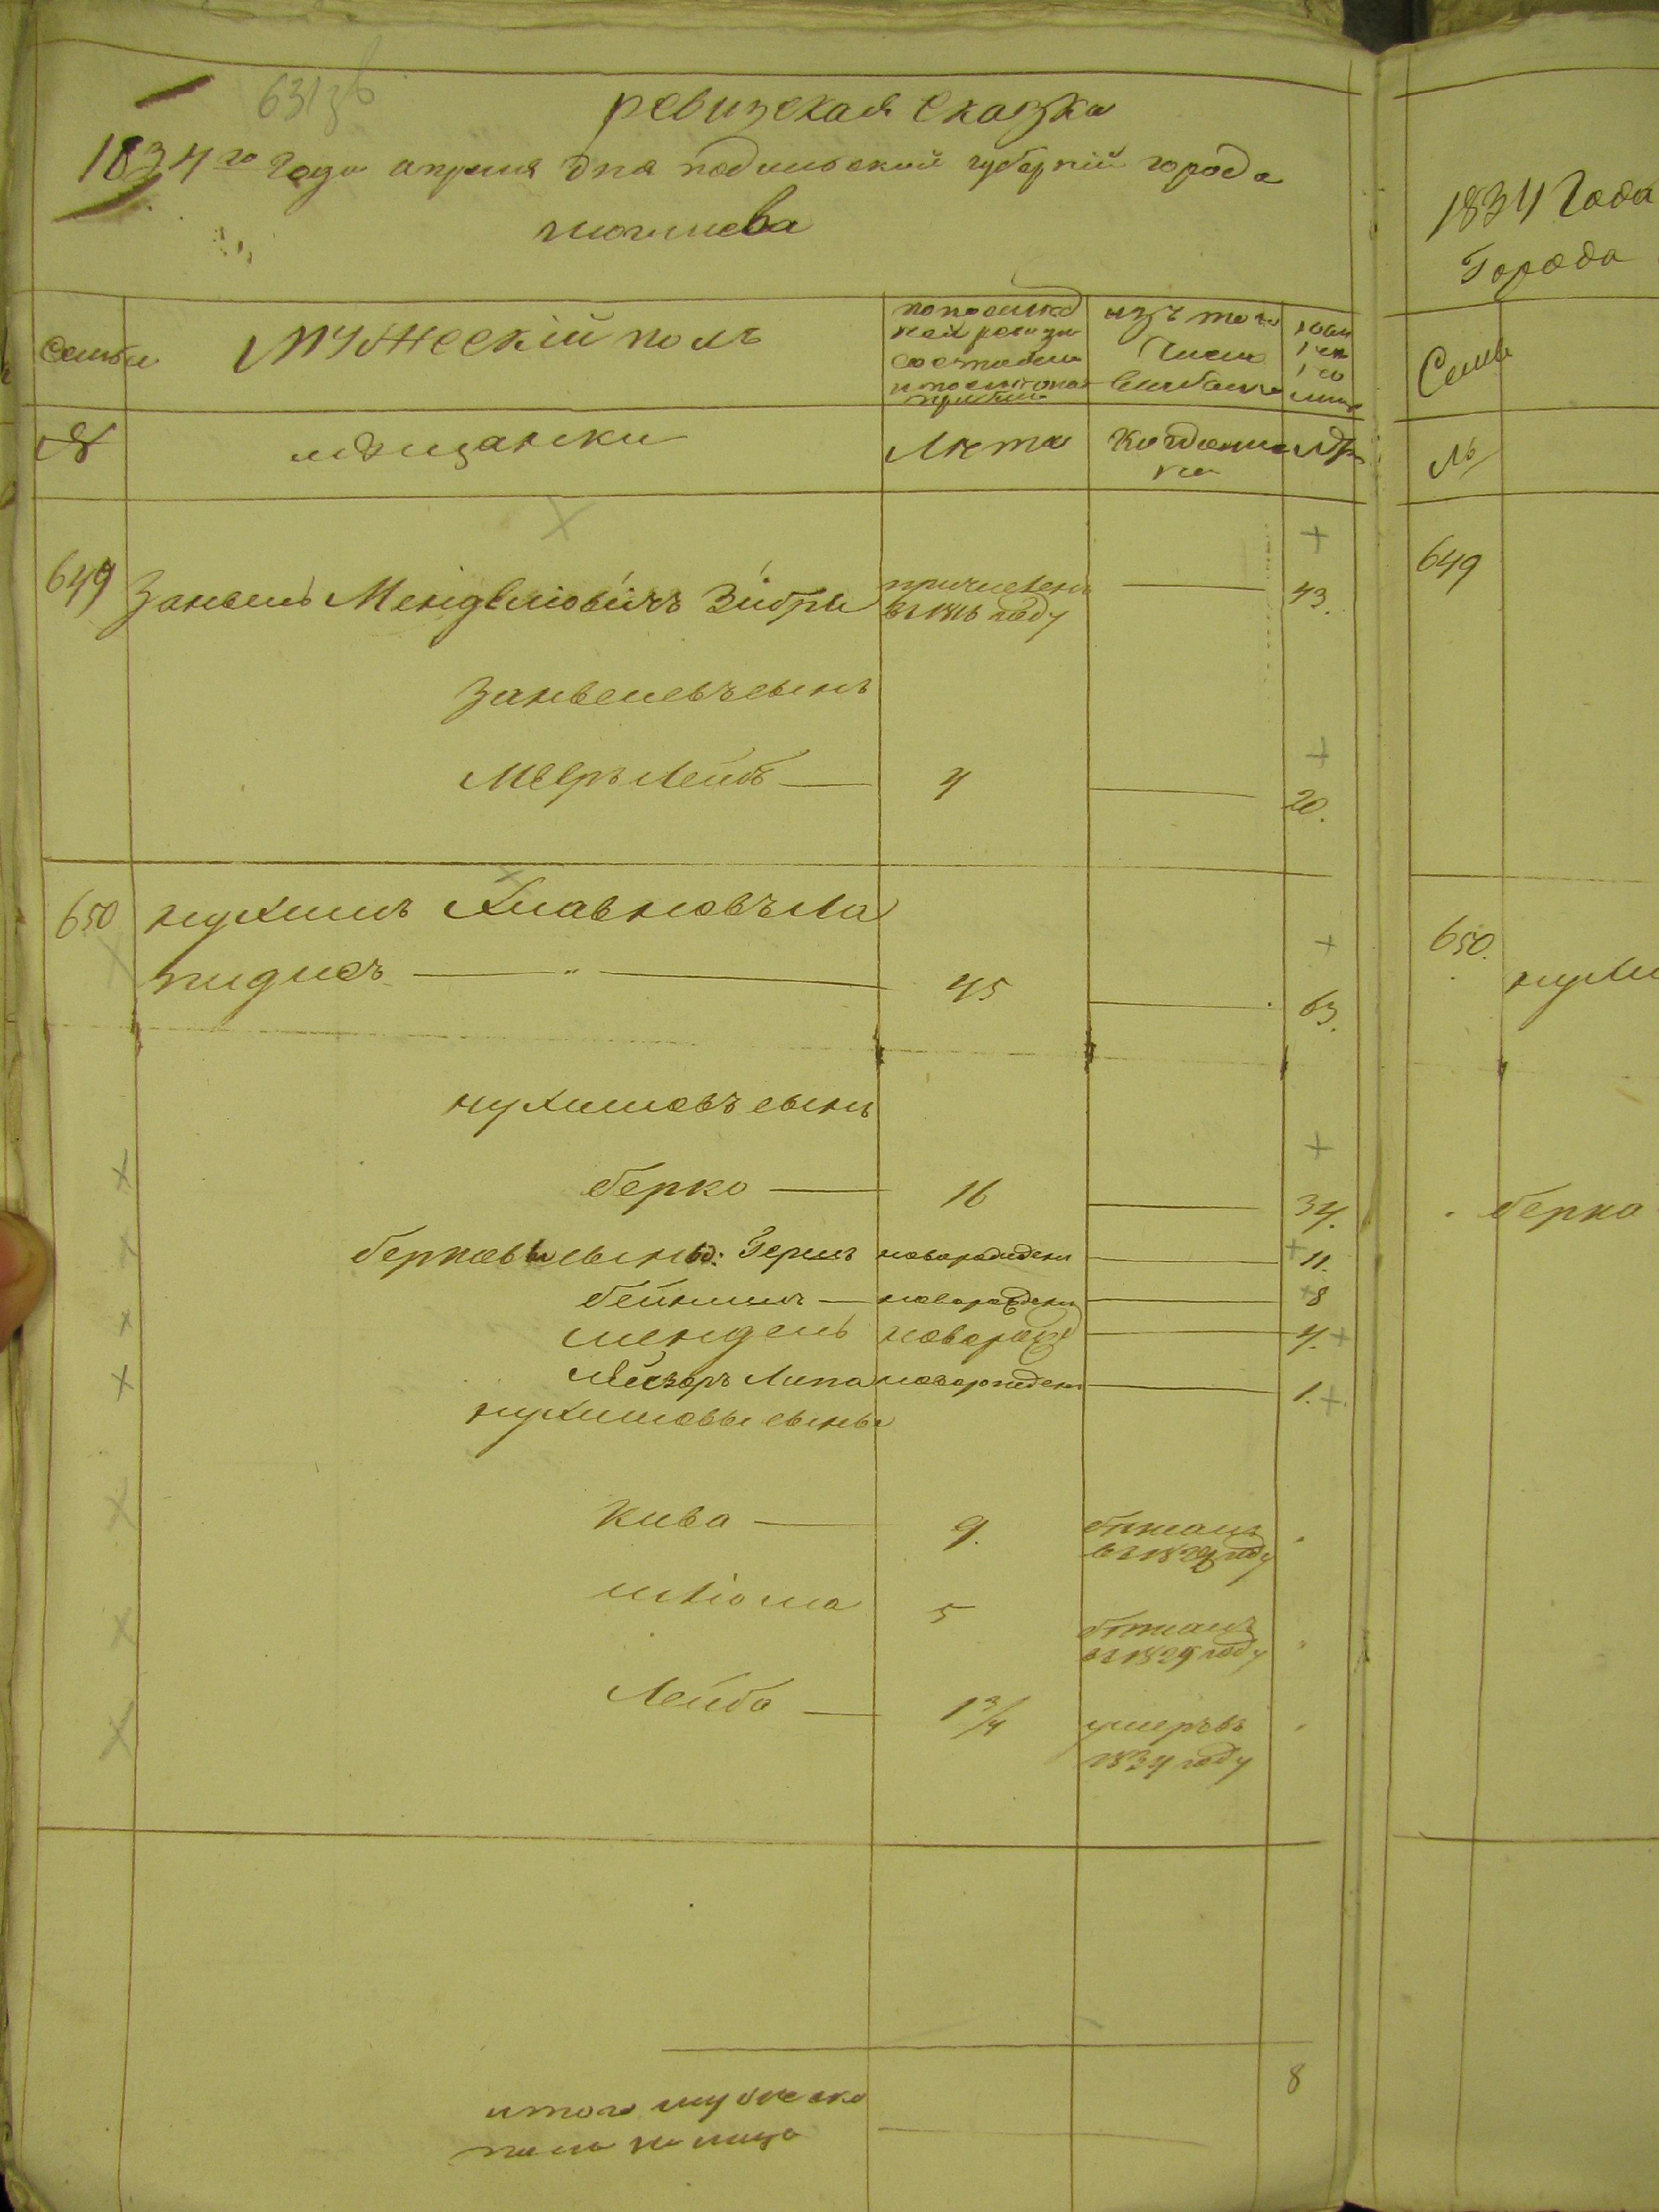 631
ревизская сказка
1834го года апреля дня подольской губерніи города
могилева
семьи
Мужескій полъ
по послед
ней ревизіи
состояло
и после того
прибыло
изъ того
числа
выбыло
ныне
№
мещански
Лета
когда именно
Лета
649
Занвель Менделіовичъ Зибры
причисленъ
въ 1816 году
43.
Занвелевъ сынъ
Мееръ Лейбъ
4
20.
650
нухимъ Хнавновъ Ла
пидусъ
45
63.
нухимовъ сынъ
берко
16
34.
берковы сыновья: Гершъ новорожденъ
11.
бейнишъ новорожденъ
8
мендель новорожд
4.
Лейзоръ Липа новорожденъ
1.
нухимовы сыны
Кива
9.
бежалъ
въ 1829 году
шліома
5
бежалъ
въ 1829 году
Лейба
1 3/4
умеръ въ
1834 году
итого мужеска
пола на лицо
8
1834 Года
Города
Семьи
№
649
650.
нухи
берка